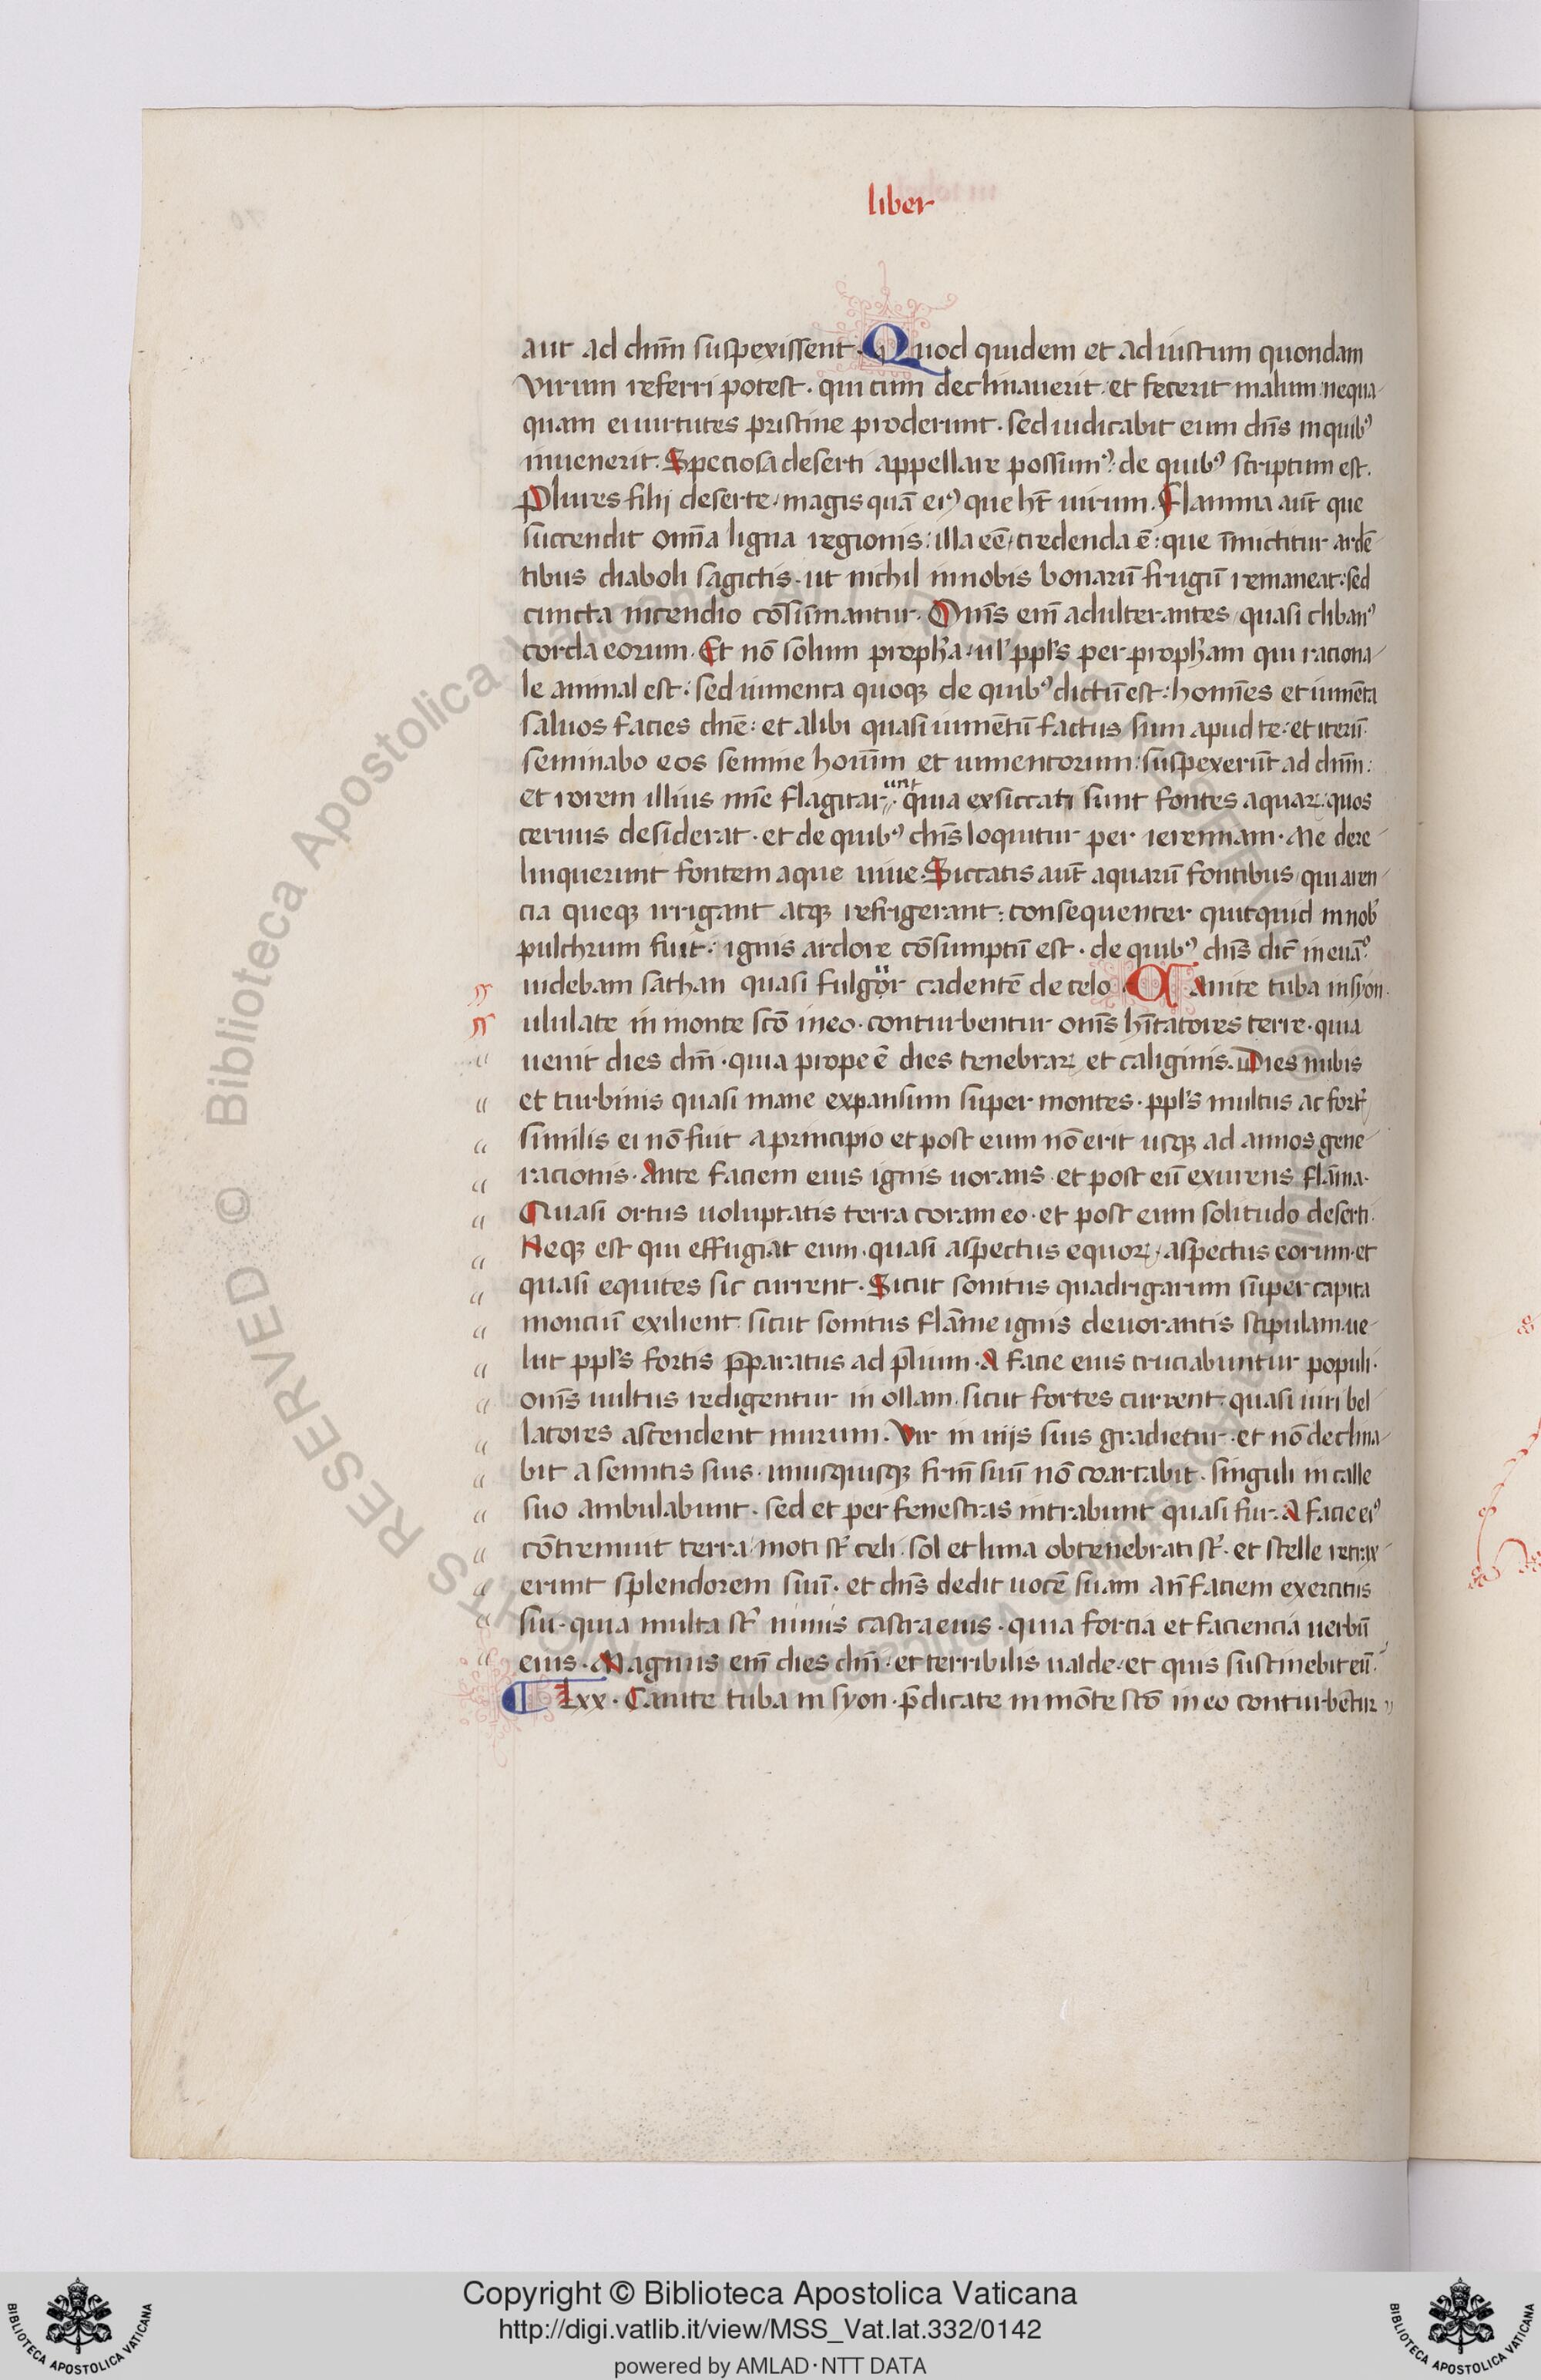 liber
aut ad dn̄m suspexissent · Quod quidem et ad iustum quondam
virum referri potest · qui cum declinauerit · et fecerit malum : nequa
quam ei uirtutes pristine proderunt · sed iudicabit eum dn̄s in quibꝰ
inuenerit. Speciosa deserti appellare possumꝰ : de quibꝰ scriptum est.
Plures filij deserte / magis quā eiꝰ que hn̄t uirum. Flamma aut̄ que
succendit om̄ia ligna regionis : illa eē / credenda ē : que īmictitur ardē
tibus diaboli sagictis · ut nichil in nobis bonarū frugū remaneat : sed
cuncta incendio cōsūmantur. Om̄s em̄ adulterantes / quasi clibanꝰ
corda eorum. Et nō solum proph̄a · ul' ppl's per proph̄am qui raciona
le animal est : sed iumenta quoqꝫ de quibꝰ dictū est : homīes et iumēta
saluos facies dn̄e : et alibi quasi iumentū factus sum apud te · et iterū
seminabo eos semine hoīum et iumentorum : suspexerūt ad dn̄m :
et rorem illius mīe flagitarunt · quia exsiccati sunt fontes aquaꝝ : quos
ceruus desiderat · et de quibꝰ dn̄s loquitur per ieremiam · Me dere
linquerunt fontem aque uiue. Siccatis aut̄ aquarū fontibus / qui aren
cia queqꝫ irrigant atqꝫ refrigerant : consequenter quitquid in nob'
pulchrum fuit : ignis ardore cōsumptū est · de quibꝰ dn̄s dic̄ in euāꝰ
uidebam sathan quasi fulgur cadentē de celo Canite tuba in syon ·
ululate in monte scō meo · conturbentur om̄s hītatores terre · quia
uenit dies dn̄i · quia prope ē dies tenebraꝝ et caliginis. Dies nubis
et turbinis quasi mane expansum super montes · ppl's multus ac fort'
similis ei nō fuit a principio et post eum nō erit usqꝫ ad annos gene
racionis · Ante faciem eius ignis uorans · et post eū exurens flāma ·
Quasi ortus uoluptatis terra coram eo · et post eum solitudo deserti ·
Neqꝫ est qui effugiat eum · quasi aspectus equoꝝ / aspectus eorum · et
quasi equites sic current · Sicut sonitus quadrigarum super capita
monciū exilient sicut sonitus flāme ignis deuorantis stipulam · ue
lut ppl's fortis p̄paratus ad p̄lium · A facie eius cruciabuntur populi ·
om̄s uultus redigentur in ollam · sicut fortes current · quasi uiri bel
latores ascendent murum. Vir in uijs suis gradietur · et nō declina
bit a semitis suis · unusquisqꝫ fr̄m suū nō coartabit · singuli in calle
suo ambulabunt · sed et per fenestras intrabunt quasi fur · A facie eiꝰ
cōtremuit terra / moti st̄ celi · sol et luna obtenebrati st̄ · et stelle retrax
erunt splendorem suū · et dn̄s dedit uocē suam an̄ faciem exercitus
sui · quia multa st̄ nimis castra eius · quia forcia et faciencia uerbū
eius · Magnus em̄ dies dn̄i · et terribilis ualde · et quis sustinebit eū ·
Lxx · Canite tuba in syon · p̄dicate in mōte scō meo conturbēt̄ur
Copyright © Biblioteca Apostolica Vaticana
http://digi.vatlib.it/view/MSS_Vat.lat.332/0142
powered by AMLAD·NTT DATA
BIBLIOTECA APOSTOLICA VATICANA
BIBLIOTECA APOSTOLICA VATICANA